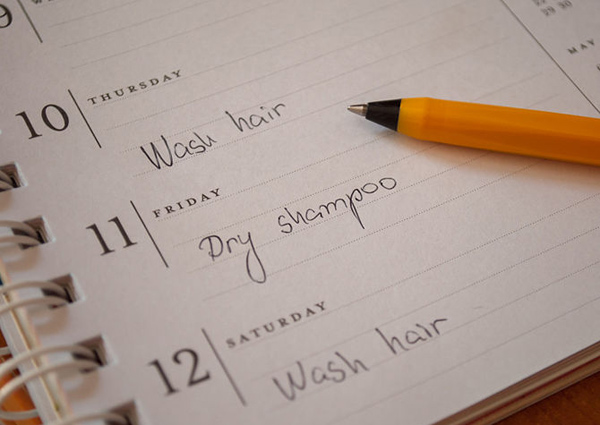 THURSDAY
10
Wash hair
FRIDAY
11
Dry shampoo
SATURDAY
12
Wash hair
MAY
29 30